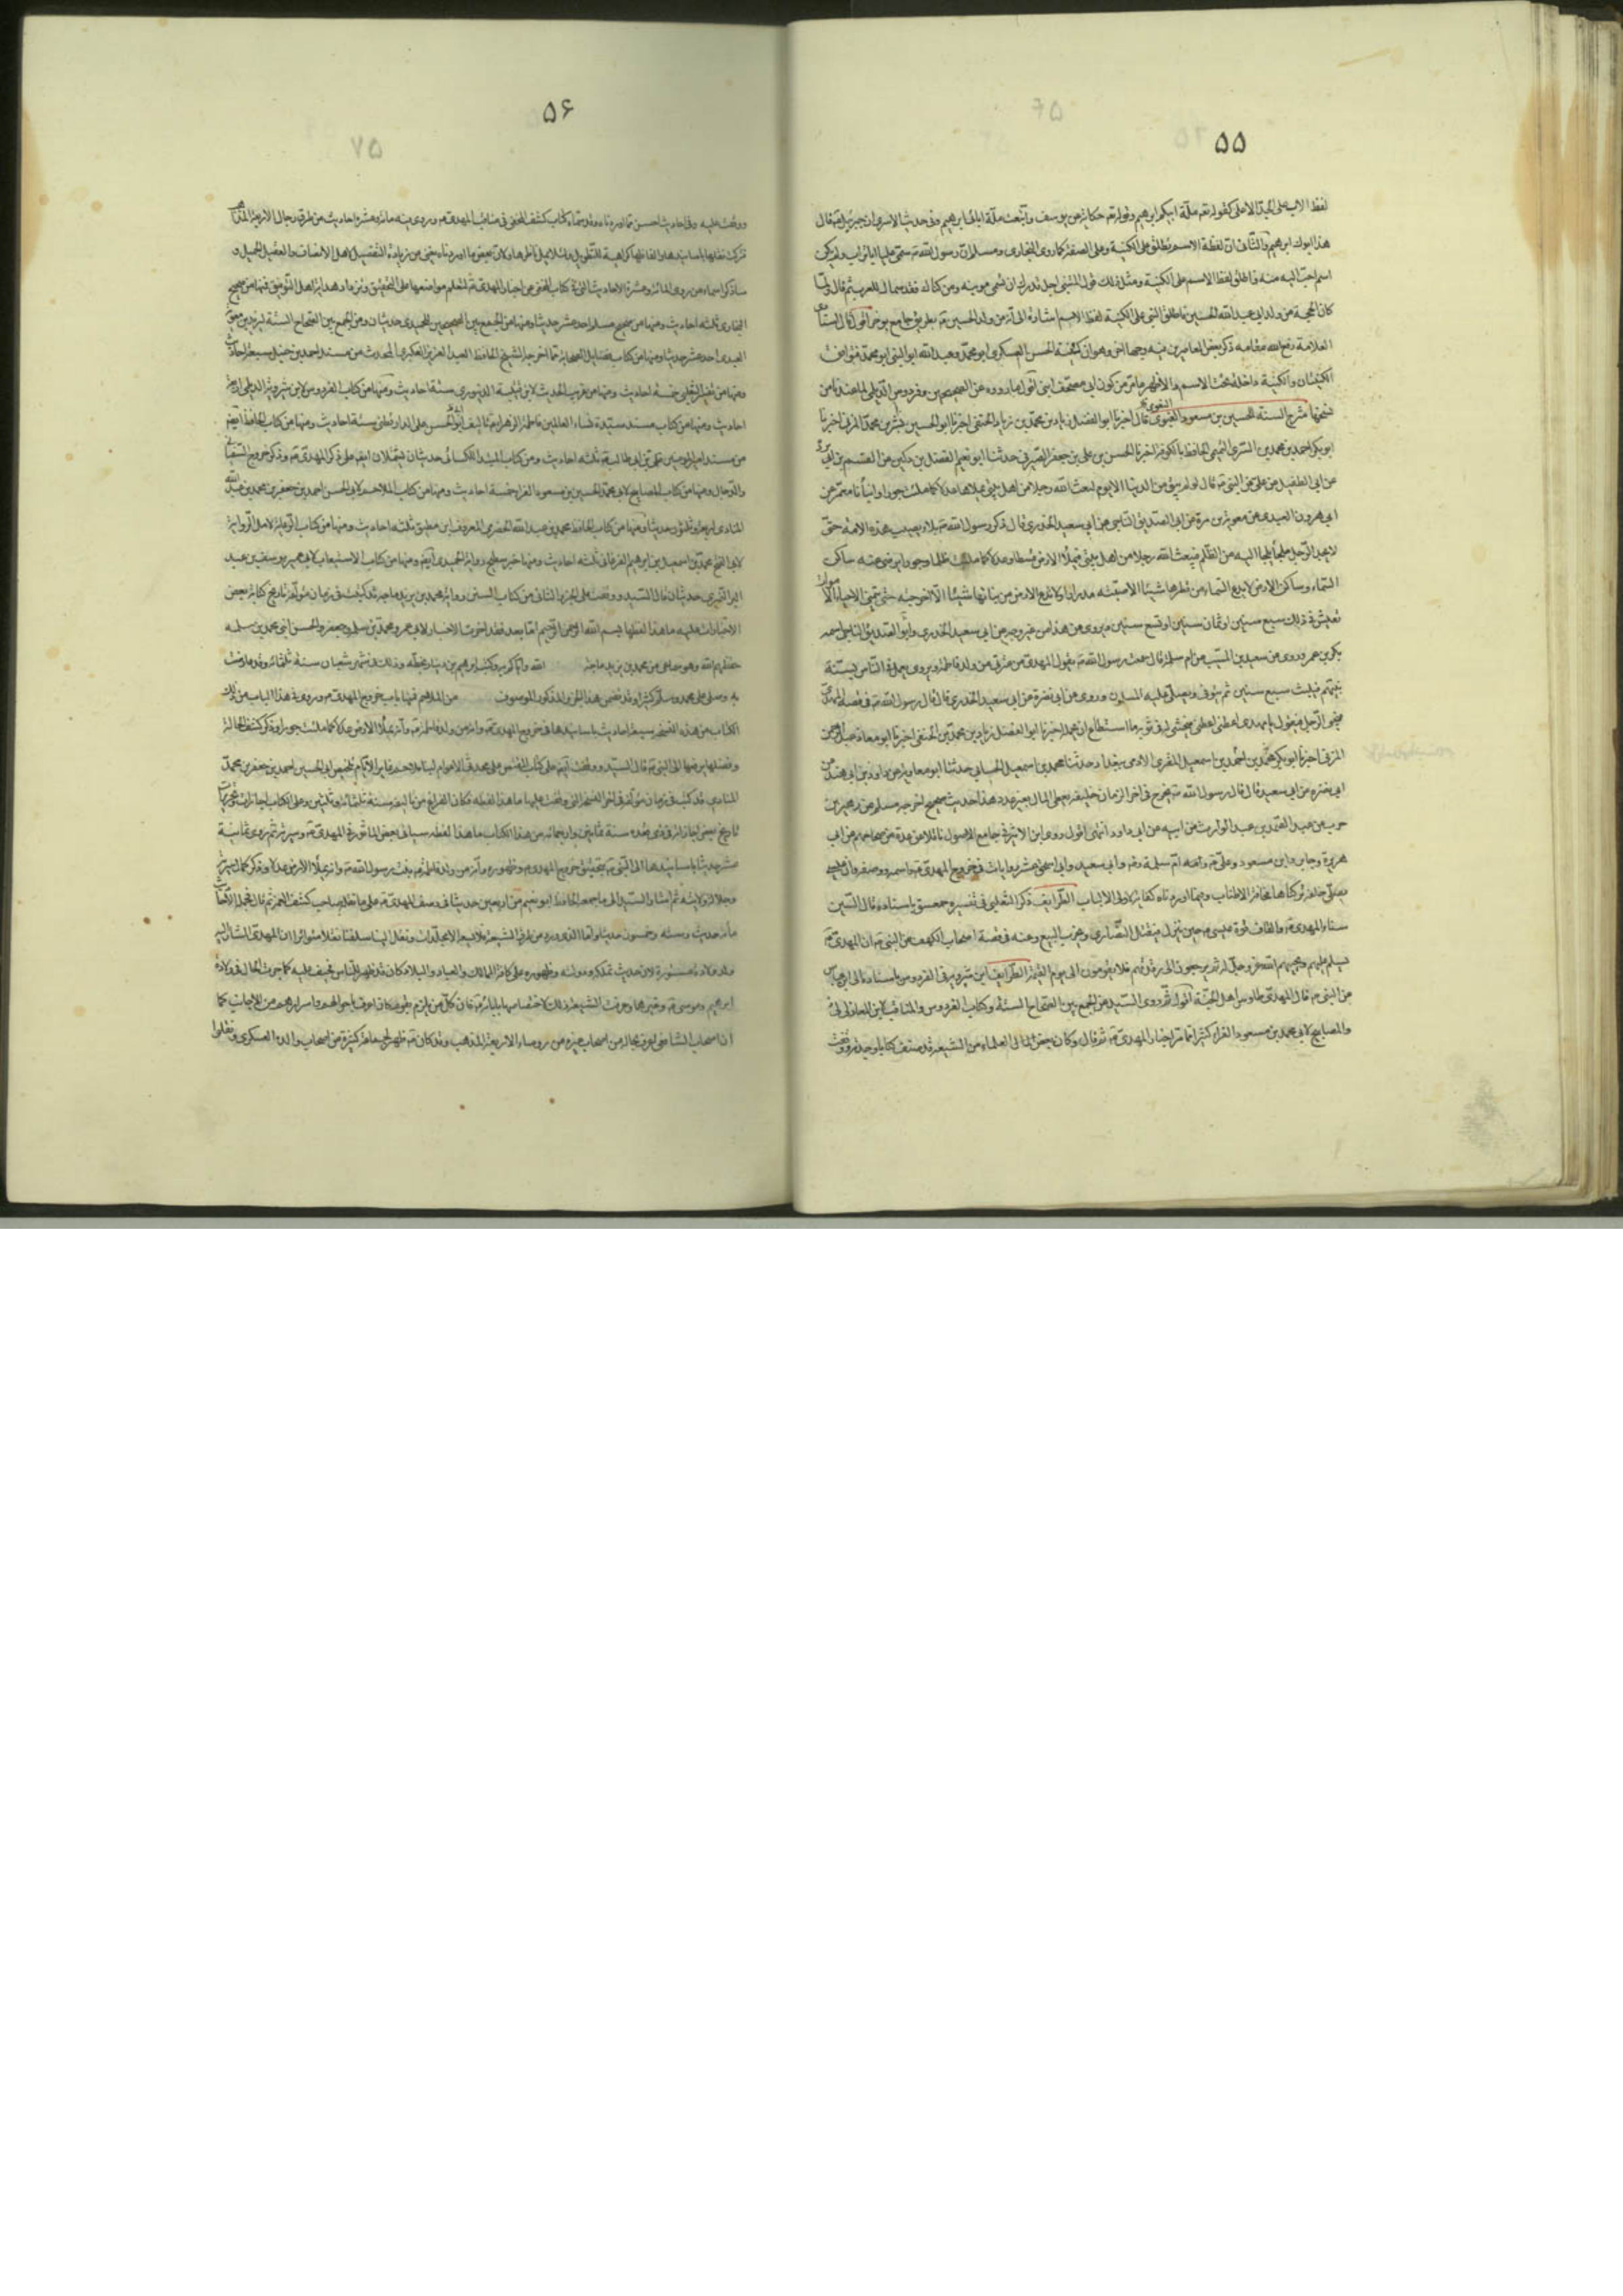 ۵۵
لفظ الاب على الجد الاعلى كقوله تعالى ملة ابيكم ابرهيم وقوله تعالى حكاية عن يوسف واتبعت ملة ابائى ابرهيم وفى حديث الاسرى ان جبرئيل قال
هذا ابوك ابرهيم والثانى ان لفظة الاسم تطلق على الكنية وعلى الصفة كما روى البخارى ومسلم ان رسول الله سمى عليا ابا تراب ولم يكن
اسم احب اليه منه فاطلق لفظ الاسم على الكنية ومثل ذلك قول المتنبى اجل قدرك ان تسمى مؤبنة ومن كناك فقد سماك للعرب ثم قال ولما
كان الحجة من ولد ابى عبد الله الحسين فاطلق النبى على الكنية لفظ الاسم اشارة الى انه من ولد الحسين بطريق جامع موجز اقول قال
العلامة رفع الله مقامه ذكر بعض المعاصرين فيه وجها اخر وهو ان كنية الحسن العسكرى ابو محمد وعبد الله ابو النبى ابو محمد فتوافق
الكنيتان والكنية داخلة تحت الاسم والاظهر ما مر من كون ابى مصحف ابنى اقول
شرح السنة للحسين بن مسعود البغوى قال اخبرنا ابو الفضل زياد بن محمد بن زياد الحنفى اخبرنا ابو الحسين بشر بن محمد المزنى اخبرنا
ابو بكر احمد بن محمد بن السرى التميمى الحافظ بالكوفة اخبرنا الحسن بن على بن جعفر الصيرفى حدثنا ابو نعيم الفضل بن دكين عن القسم بن ابى بزة
عن ابى الطفيل عن على عن النبى قال لو لم يبق من الدنيا الا يوم لبعث الله رجلا من اهل بيتى يملاها عدلا كما ملئت جورا وانبأنا معمر عن
ابى هرون العبدى عن معوية بن قرة عن ابى الصديق الناجى عن ابى سعيد الخدرى قال ذكر رسول الله بلاء يصيب هذه الامة حتى
لا يجد الرجل ملجأ يلجأ اليه من الظلم فيبعث الله رجلا من اهل بيتى فيملأ الارض قسطا وعدلا كما ملئت ظلما وجورا يرضى عنه ساكن
السماء وساكن الارض لا يدع السماء من قطرها شيئا الا صبته مدرارا ولا يدع الارض من نباتها شيئا الا اخرجته حتى يتمنى الاحياء الاموات
تعيش فى ذلك سبع سنين او ثمان سنين او تسع سنين ويروى هذا من غير وجه عن ابى سعيد الخدرى وابو الصديق الناجى اسمه
بكر بن عمر وروى عن سعيد بن المسيب عن ام سلمة قال سمعت رسول الله يقول المهدى من عترتى من ولد فاطمة ويروى ويعمل فى الناس بسنة
نبيهم فيلبث سبع سنين ثم يتوفى ويصلى عليه المسلمون وروى عن ابى نضرة عن ابى سعيد الخدرى قال قال رسول الله فى قصة المهدى
فيجئ الرجل فيقول يا مهدى اعطنى اعطنى فيحثى له فى ثوبه ما استطاع ان يحمل اخبرنا ابو الفضل زياد بن محمد بن الحنفى اخبرنا ابو معاذ عبد الرحمن
المزنى اخبرنا ابو بكر محمد بن احمد بن اسمعيل المقرى الادمى ببغداد حدثنا محمد بن اسمعيل الحسانى حدثنا ابو معاوية عن داود بن ابى هند عن
ابى نضرة عن ابى سعيد قال قال رسول الله يخرج فى اخر الزمان خليفة يعطى المال بغير عدد هذا حديث صحيح اخرجه مسلم عن زهير بن
حرب عن عبد الصمد بن عبد الوارث عن ابيه عن ابى داود انتهى اقول روى ابن الاثير فى جامع الاصول ناقلا عن عدة من صحاحهم عن ابى
هريرة وجابر وابن مسعود وعلى وام سلمة وابى سعيد وابى اسحق عشر روايات فى خروج المهدى واسمه ووصفه وان عيسى
يصلى خلفه تركناها مخافة الاطناب وفيما اوردناه كفاية لاولى الالباب الطرايف ذكر الثعلبى فى تفسير حمعسق باسناده قال السين
سناء المهدى والقاف قوة عيسى حين ينزل فيقتل النصارى ويخرب البيع وعنه فى قصة اصحاب الكهف عن النبى ان المهدى
يسلم عليهم ويحييهم الله عز وجل له ثم يرجعون الى رقدتهم فلا يقومون الى يوم القيمة الطرايف ابن شيرويه فى الفردوس باسناده الى ابن عباس
عن النبى قال المهدى طاوس اهل الجنة اقول ثم روى السيد عن الجمع بين الصحاح الستة وكتاب الفردوس والمناقب لابن المغازلى
والمصابيح لابى محمد بن مسعود الفراء كثيرا مما مر من اخبار المهدى ثم قال وكان بعض العلماء من الشيعة قد صنف كتابا وجدته ووقفت
۵۶
ووقفت عليه وفيه احاديث احسن مما اوردناه وقد سماه كتاب كشف المخفى فى مناقب المهدى وروى فيه مائة وعشرة احاديث من طرق رجال الاربعة المذاهب
تركت نقلها باسانيدها والفاظها كراهية للتطويل ولئلا يمل ناظرها ولان بعض ما اوردناه يغنى عن زيادة التفصيل لاهل الانصاف والعقل الجميل و
ساذكر اسماء من روى المائة وعشرة الاحاديث التى فى كتاب المخفى عن اخبار المهدى لتعلم مواضعها على التحقيق وتزداد هداية اهل التوفيق فمنها من صحيح
البخارى ثلثة احاديث ومنها من صحيح مسلم احد عشر حديثا ومنها من الجمع بين الصحيحين للحميدى حديثان ومن الجمع بين الصحاح الستة لزيد بن معوية
العبدرى احد عشر حديثا ومنها من كتاب فضايل الصحابة مما اخرجه الشيخ الحافظ عبد العزيز العكبرى المحدث من مسند احمد بن حنبل سبعة احاديث
ومنها من تفسير الثعلبى خمسة احاديث ومنها من غريب الحديث لابن قتيبة الدينورى ستة احاديث ومنها من كتاب الفردوس لابن شيرويه الديلمى اربعة
احاديث ومنها من كتاب مسند سيدة نساء العالمين فاطمة الزهراء تاليف الحافظ ابو الحسن على الدارقطنى ستة احاديث ومنها من كتاب الحافظ ايضا
من مسند امير المؤمنين على بن ابى طالب ثلثة احاديث ومن كتاب المبتدا للكسائى حديثان يشتملان ايضا على ذكر المهدى وذكر خروج السفيانى
والدجال ومنها من كتاب المصابيح لابى محمد الحسين بن مسعود الفراء خمسة احاديث ومنها من كتاب الملاحم لابى الحسن احمد بن جعفر بن محمد بن عبيد الله
المنادى اربعة وثلثون حديثا ومنها من كتاب الحافظ محمد بن عبد الله الحضرمى المعروف بابن مطيق ثلثة احاديث ومنها من كتاب الرعاية لامل الرواية
لابى الفتح محمد بن اسمعيل بن ابرهيم الفرغانى ثلثة احاديث ومنها خبر سطيح رواية الحميدى ايضا ومنها من كتاب الاستيعاب لابى عمر يوسف بن عبد
البر النميرى حديثان قال السيد ووقفت على الجزء الثانى من كتاب السنن رواية محمد بن يزيد ماجه قد كتب فى زمان مؤلفه تاريخ كتابة بعض
الاجازات عليه ما هذا لفظها بسم الله الرحمن الرحيم اما بعد فقد اجزت الاخبار لابى عمرو ومحمد بن سلمة وجعفر والحسن ابنى محمد بن سلمة
حفظهم الله وهو سماعى من محمد بن يزيد ماجه الله واياكم به وكتب ابرهيم بن دينار بخطه وذلك فى شهر شعبان سنة ثلثمائة وقد عارضت
به وصلى على محمد وسلم كثيرا وقد تضمن هذا الجزء المذكور الموصوف من الملاحم فمنها باب خروج المهدى وروى فى هذا الباب من ذلك
الكتاب من هذه النسخة سبعة احاديث باسانيدها فى خروج المهدى وانه من ولد فاطمة وانه يملأ الارض عدلا كما ملئت جورا وذكر كشف الحالة
وفضلها يرفعها الى النبى قال السيد ووقفت ايضا على كتاب المقتص على محدث الاعوام لنبأ ملاحم غابر الايام تلخيص ابى الحسين احمد بن جعفر بن محمد
المنادى قد كتب فى زمان مؤلفه فى اخر النسخة التى وقفت عليها ما هذا لفظه فكان الفراغ من تاليفه سنة ثلثمائة وثلثين وعلى الكتاب اجازات وتجويزات
تاريخ بعض اجازاته فى ذى قعدة سنة ثمانين واربعمائة من هذا الكتاب ما هذا لفظه سياتى بعض الماثور فى المهدى وسيرته ثم روى ثمانية
عشر حديثا باسانيدها الى النبى بتحقيق خروج المهدى وظهوره وانه من ولد فاطمة بنت رسول الله وانه يملأ الارض عدلا وذكر كمال سيرته
وجلالة ولايته ثم اشار السيد الى ما جمعه الحافظ ابو نعيم من اربعين حديثا فى وصف المهدى على ما نقله صاحب كشف الغمة ثم قال فجملة الاحاديث
مائة حديث وستة وخمسون حديثا واما الذى ورد من طرق الشيعة فلا يسعه الا مجلدات ونقل الينا سلفنا نقلا متواترا ان المهدى المشار اليه
ولد ولادة مستورة لان حديث تملكه ودولته وظهوره على كافة الممالك والعباد والبلاد كان قد ظهر للناس فخيف عليه كما جرت الحال فى ولادة
ابرهيم وموسى وغيرهما وعرفت الشيعة ذلك لاختصاصها بابائه فان كل من يلزم بقوم كان اعرف باحوالهم واسرارهم من الاجانب كما
ان اصحاب الشافعى اعرف بحاله من اصحاب غيره من رؤساء الاربعة المذاهب وقد كان ظهر لجماعة كثيرة من اصحاب والده العسكرى ونقلوا